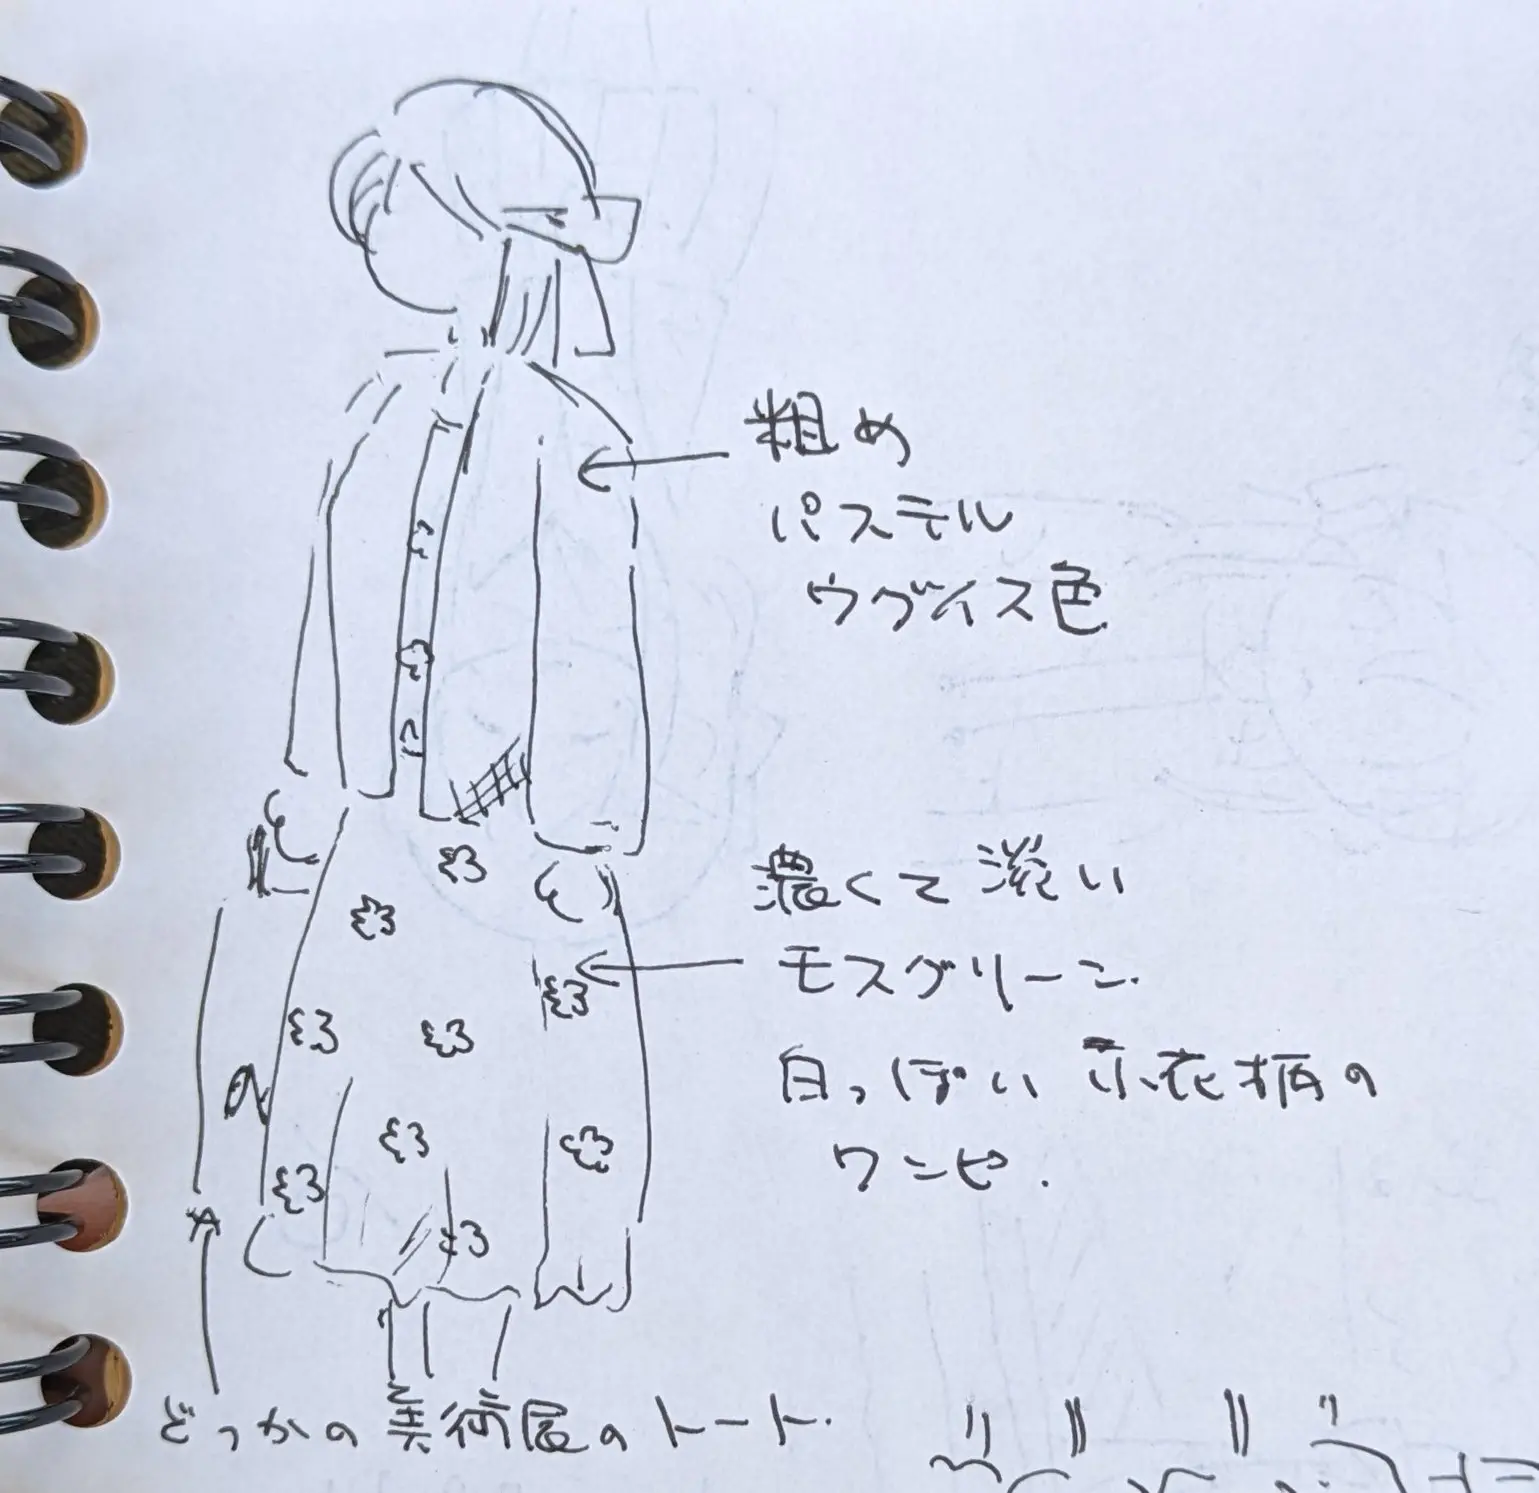 粗め
パステル
ウグイス色
濃くて淡い
モスグリーン.
白っぽい小花柄の
ワンピ.
どっかの美術展のトート.